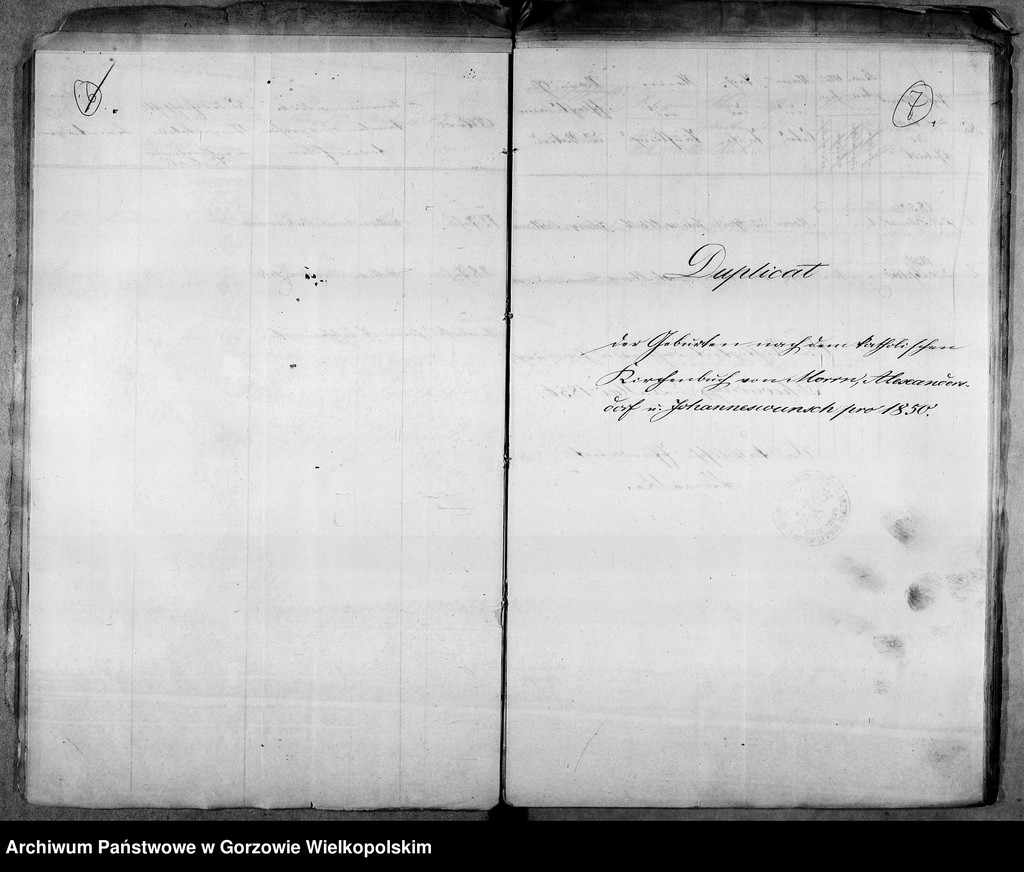 6
7
Duplicat
der Geburten nach dem katholischen
Kirchenbuch von Morrn, Alexanders-
dorf u. Johanneswunsch pro 1850.
Archiwum Państwowe w Gorzowie Wielkopolskim